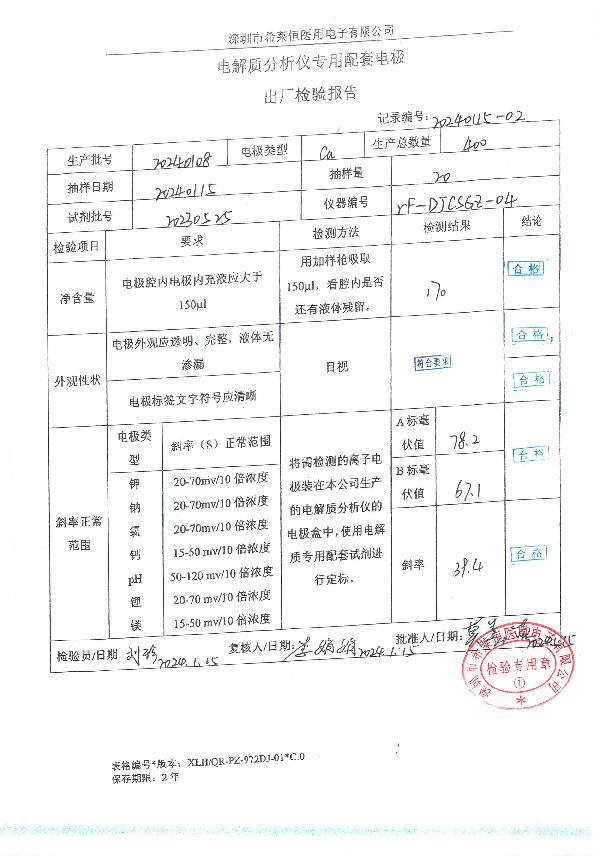 深圳市希莱恒医用电子有限公司
电解质分析仪专用配套电极
出厂检验报告
记录编号：20240115-02
生产批号 20240108 电极类型 Ca 生产总数量 400
抽样日期 20240115 抽样量 20
试剂批号 20230525 仪器编号 YF-DJCSGZ-04
检验项目 要求 检测方法 检测结果 结论
净含量 电极腔内电极内充液应大于 150μl 用加样枪吸取 150μl，看腔内是否还有液体残留。 170 合格
外观性状 电极外观应透明、完整，液体无渗漏 目视 符合要求 合格
电极标签文字符号应清晰 合格
斜率正常范围 电极类型 斜率（S）正常范围 将需检测的离子电极装在本公司生产的电解质分析仪的电极盒中，使用电解质专用配套试剂进行定标。 A 标毫伏值 78.2 合格
钾 20-70mv/10 倍浓度
钠 20-70mv/10 倍浓度 B 标毫伏值 67.1
氯 20-70mv/10 倍浓度
钙 15-50 mv/10 倍浓度 斜率 39.4 合格
pH 50-120 mv/10 倍浓度
锂 20-70 mv/10 倍浓度
镁 15-50 mv/10 倍浓度
检验员/日期 2024.1.15 复核人/日期： 2024.1.15 批准人/日期： 2024.1.15
深圳市希莱恒医用电子有限公司
检验专用章
①
表格编号*版本： XLH/QR-PZ-972DJ-01*C.0
保存期限：2 年